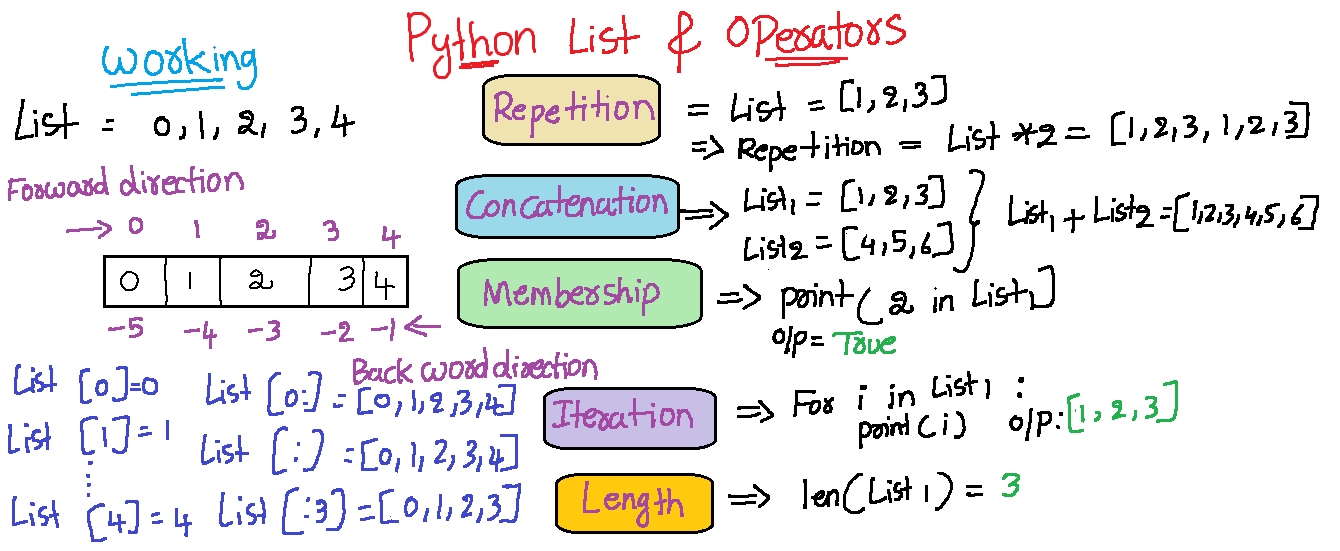 Python List & Operators
Working
List = 0, 1, 2, 3, 4
Forward direction
→ 0 1 2 3 4
0 1 2 3 4
-5 -4 -3 -2 -1 ←
Back word direction
List [0]=0
List [1]=1
⋮
List [4]=4
List [0:] = [0,1,2,3,4]
List [:) = [0,1,2,3,4]
List [:3] = [0,1,2,3]
Repetition = List = [1,2,3]
=> Repetition = List *2 = [1,2,3,1,2,3]
Concatenation => List1 = [1,2,3]
List2 = [4,5,6] } List1 + List2 = [1,2,3,4,5,6]
Membership => print( 2 in List1]
o/p = True
Iteration => For i in List1 :
print(i) o/p: [1, 2, 3]
Length => len(List1) = 3